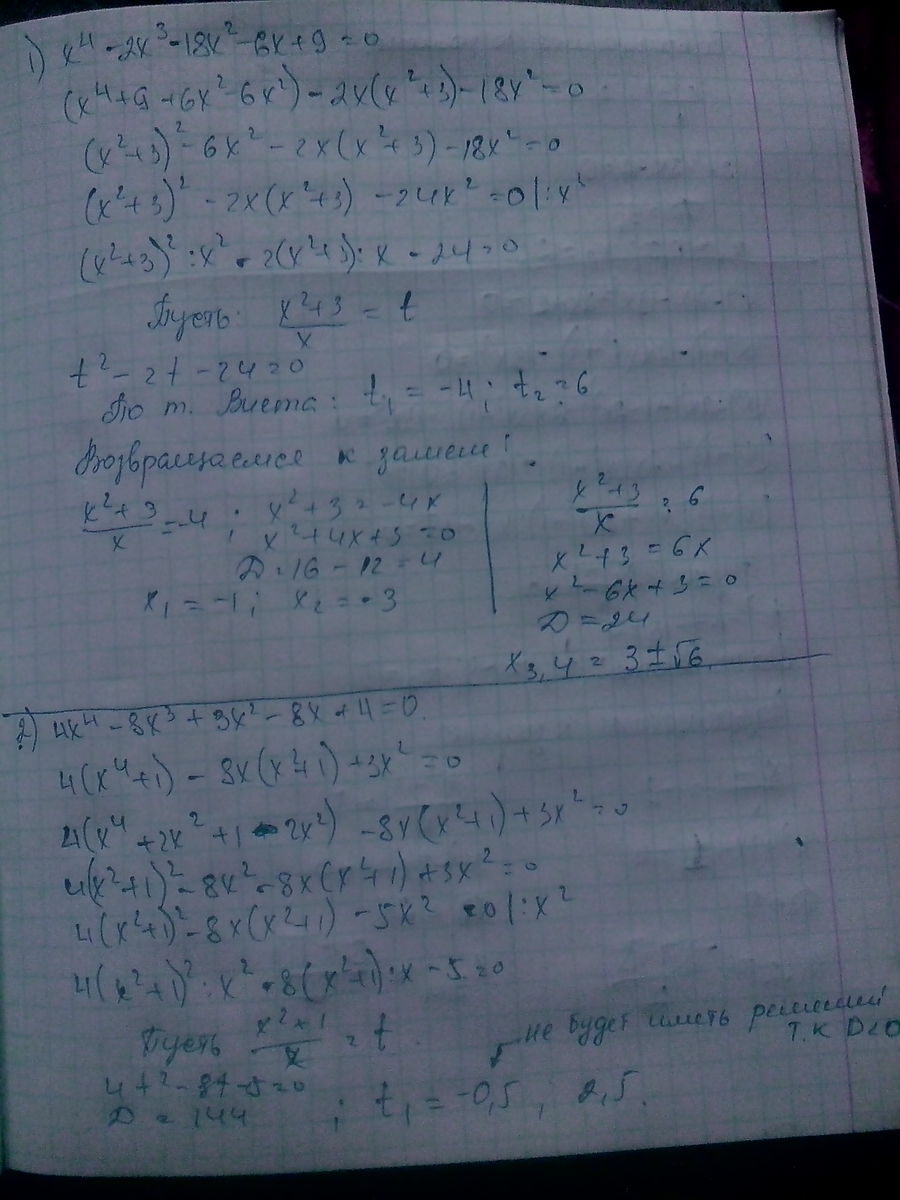 1) x⁴ - 2x³ - 18x² - 6x + 9 = 0
(x⁴ + 9 + 6x² - 6x²) - 2x(x² + 3) - 18x² = 0
(x² + 3)² - 6x² - 2x(x² + 3) - 18x² = 0
(x² + 3)² - 2x(x² + 3) - 24x² = 0 |: x²
(x² + 3)² : x² - 2(x² + 3) : x - 24 = 0
Пусть: (x² + 3)/x = t
t² - 2t - 24 = 0
По т. Виета: t₁ = -4; t₂ = 6
Возвращаемся к замене!
(x² + 3)/x = -4; x² + 3 = -4x
x² + 4x + 3 = 0
D = 16 - 12 = 4
x₁ = -1; x₂ = -3
(x² + 3)/x = 6
x² + 3 = 6x
x² - 6x + 3 = 0
D = 24
x₃,₄ = 3 ± √6
2) 4x⁴ - 8x³ + 3x² - 8x + 4 = 0.
4(x⁴ + 1) - 8x(x² + 1) + 3x² = 0
4(x⁴ + 2x² + 1 - 2x²) - 8x(x² + 1) + 3x² = 0
4(x² + 1)² - 8x² - 8x(x² + 1) + 3x² = 0
4(x² + 1)² - 8x(x² + 1) - 5x² = 0 |: x²
4(x² + 1)² : x² - 8(x² + 1) : x - 5 = 0
Пусть (x² + 1)/x = t.
не будет иметь решений
т.к D < 0
4t² - 8t - 5 = 0
D = 144 ; t₁ = -0,5; 2,5.